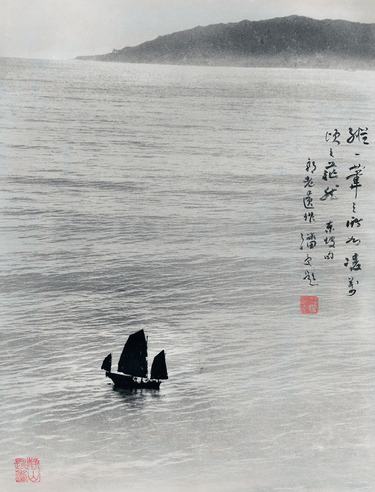 縱一葦之所如凌萬
頃之茫然 東坡句
郎老遺作 潘受題